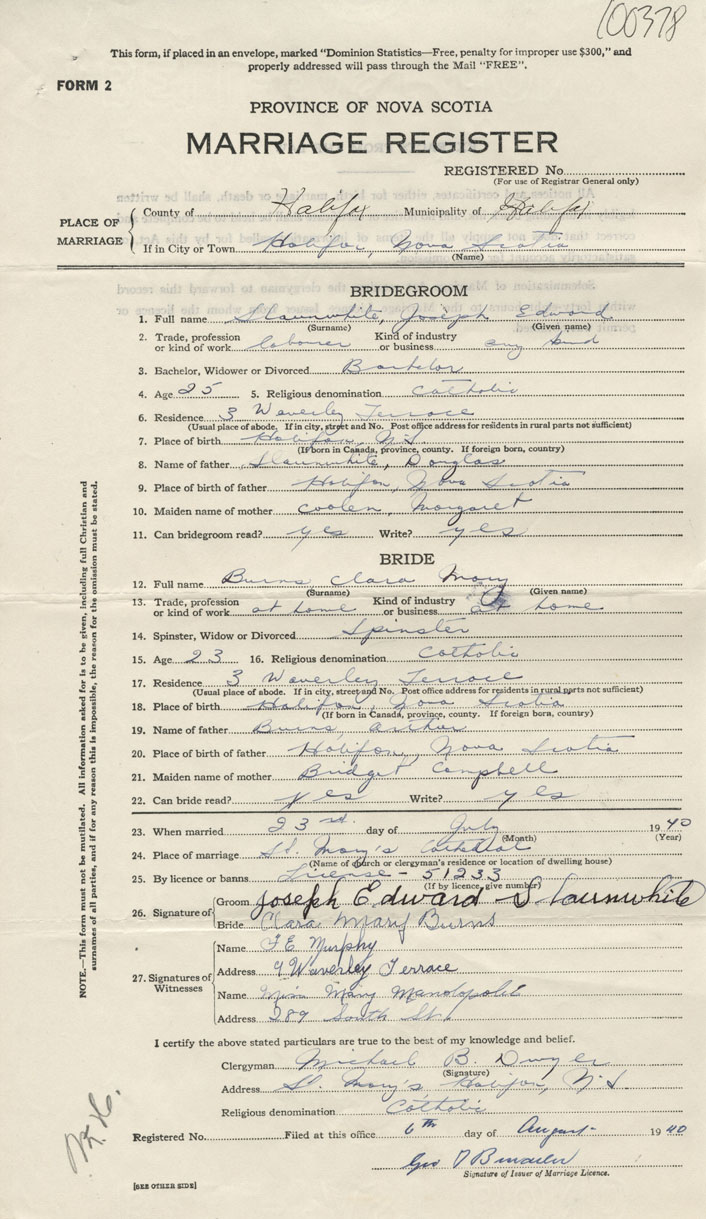 100378
This form, if placed in an envelope, marked "Dominion Statistics—Free, penalty for improper use $300," and
properly addressed will pass through the Mail "FREE".
FORM 2
PROVINCE OF NOVA SCOTIA
MARRIAGE REGISTER
REGISTERED No.
(For use of Registrar General only)
PLACE OF MARRIAGE
County of Halifax Municipality of Halifax
If in City or Town Halifax, Nova Scotia
(Name)
BRIDEGROOM
1. Full name Slaunwhite, Joseph Edward
(Surname) (Given name)
2. Trade, profession or kind of work laborer Kind of industry or business any kind
3. Bachelor, Widower or Divorced Bachelor
4. Age 25 5. Religious denomination Catholic
6. Residence 3 Waverley Terrace
(Usual place of abode. If in city, street and No. Post office address for residents in rural parts not sufficient)
7. Place of birth Halifax, N.S
(If born in Canada, province, county. If foreign born, country)
8. Name of father Slaunwhite, Douglas
9. Place of birth of father Halifax, Nova Scotia
10. Maiden name of mother Coolen, Margaret
11. Can bridegroom read? yes Write? yes
BRIDE
12. Full name Burns, Clara Mary
(Surname) (Given name)
13. Trade, profession or kind of work at home Kind of industry or business at home
14. Spinster, Widow or Divorced Spinster
15. Age 23 16. Religious denomination Catholic
17. Residence 3 Waverley Terrace
(Usual place of abode. If in city, street and No. Post office address for residents in rural parts not sufficient)
18. Place of birth Halifax, Nova Scotia
(If born in Canada, province, county. If foreign born, country)
19. Name of father Burns, Arthur
20. Place of birth of father Halifax, Nova Scotia
21. Maiden name of mother Bridget Campbell
22. Can bride read? yes Write? yes
23. When married 23rd. day of July 1940
(Month) (Year)
24. Place of marriage St. Mary's Cathedral
(Name of church or clergyman's residence or location of dwelling house)
25. By licence or banns License - 51233
(If by licence, give number)
26. Signature of
Groom Joseph Edward Slaunwhite
Bride Clara Mary Burns
27. Signatures of Witnesses
Name Murphy
Address 9 Waverley Terrace
Name Miss Mary
Address 289 South St.
I certify the above stated particulars are true to the best of my knowledge and belief.
Clergyman Michael B. Dwyer
(Signature)
Address St. Mary's Halifax, N.S
Religious denomination Catholic
Registered No. Filed at this office 6th day of August 1940
Geo
Signature of Issuer of Marriage Licence.
[SEE OTHER SIDE]
NOTE.—This form must not be mutilated. All information asked for is to be given, including full Christian and
surnames of all parties, and if for any reason this is impossible, the reason for the omission must be stated.